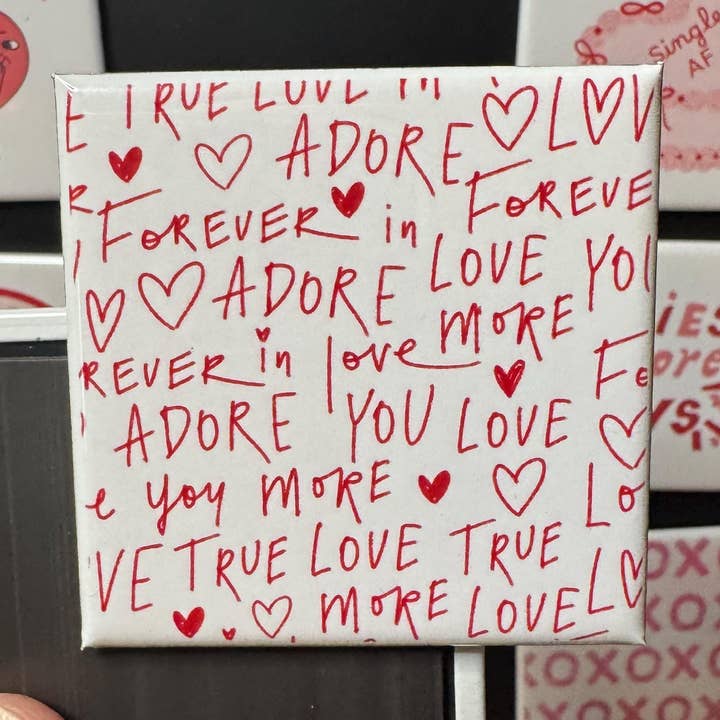 E TRUE LOVE in
ADORE LOV
FOREVER in FOREVE
ADORE LOVE YOU
MORE
REVER in love FO
ADORE YOU LOVE
e you MORE LO
VE TRUE LOVE TRUE
MORE LOVE LO
Single
AF
iES
ore
YS
OXO
XOXOXO